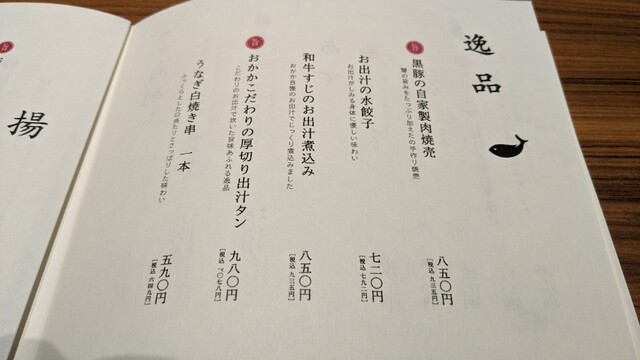 逸品
黒豚の自家製肉焼売
蟹の旨みをたっぷり加えたの手作り焼売
八五〇円
[税込 九三五円]
お出汁の水餃子
お出汁がしみる身体に優しい味わい
七二〇円
[税込 七九二円]
和牛すじのお出汁煮込み
おかか自慢のお出汁でじっくり煮込みました
八五〇円
[税込 九三五円]
おかかこだわりの厚切り出汁タン
こだわりのお出汁で炊いた旨味あふれる逸品
九八〇円
[税込 一〇七八円]
うなぎ白焼き串 一本
ふっくらとした口当たりとさっぱりした味わい
五九〇円
[税込 六四九円]
揚